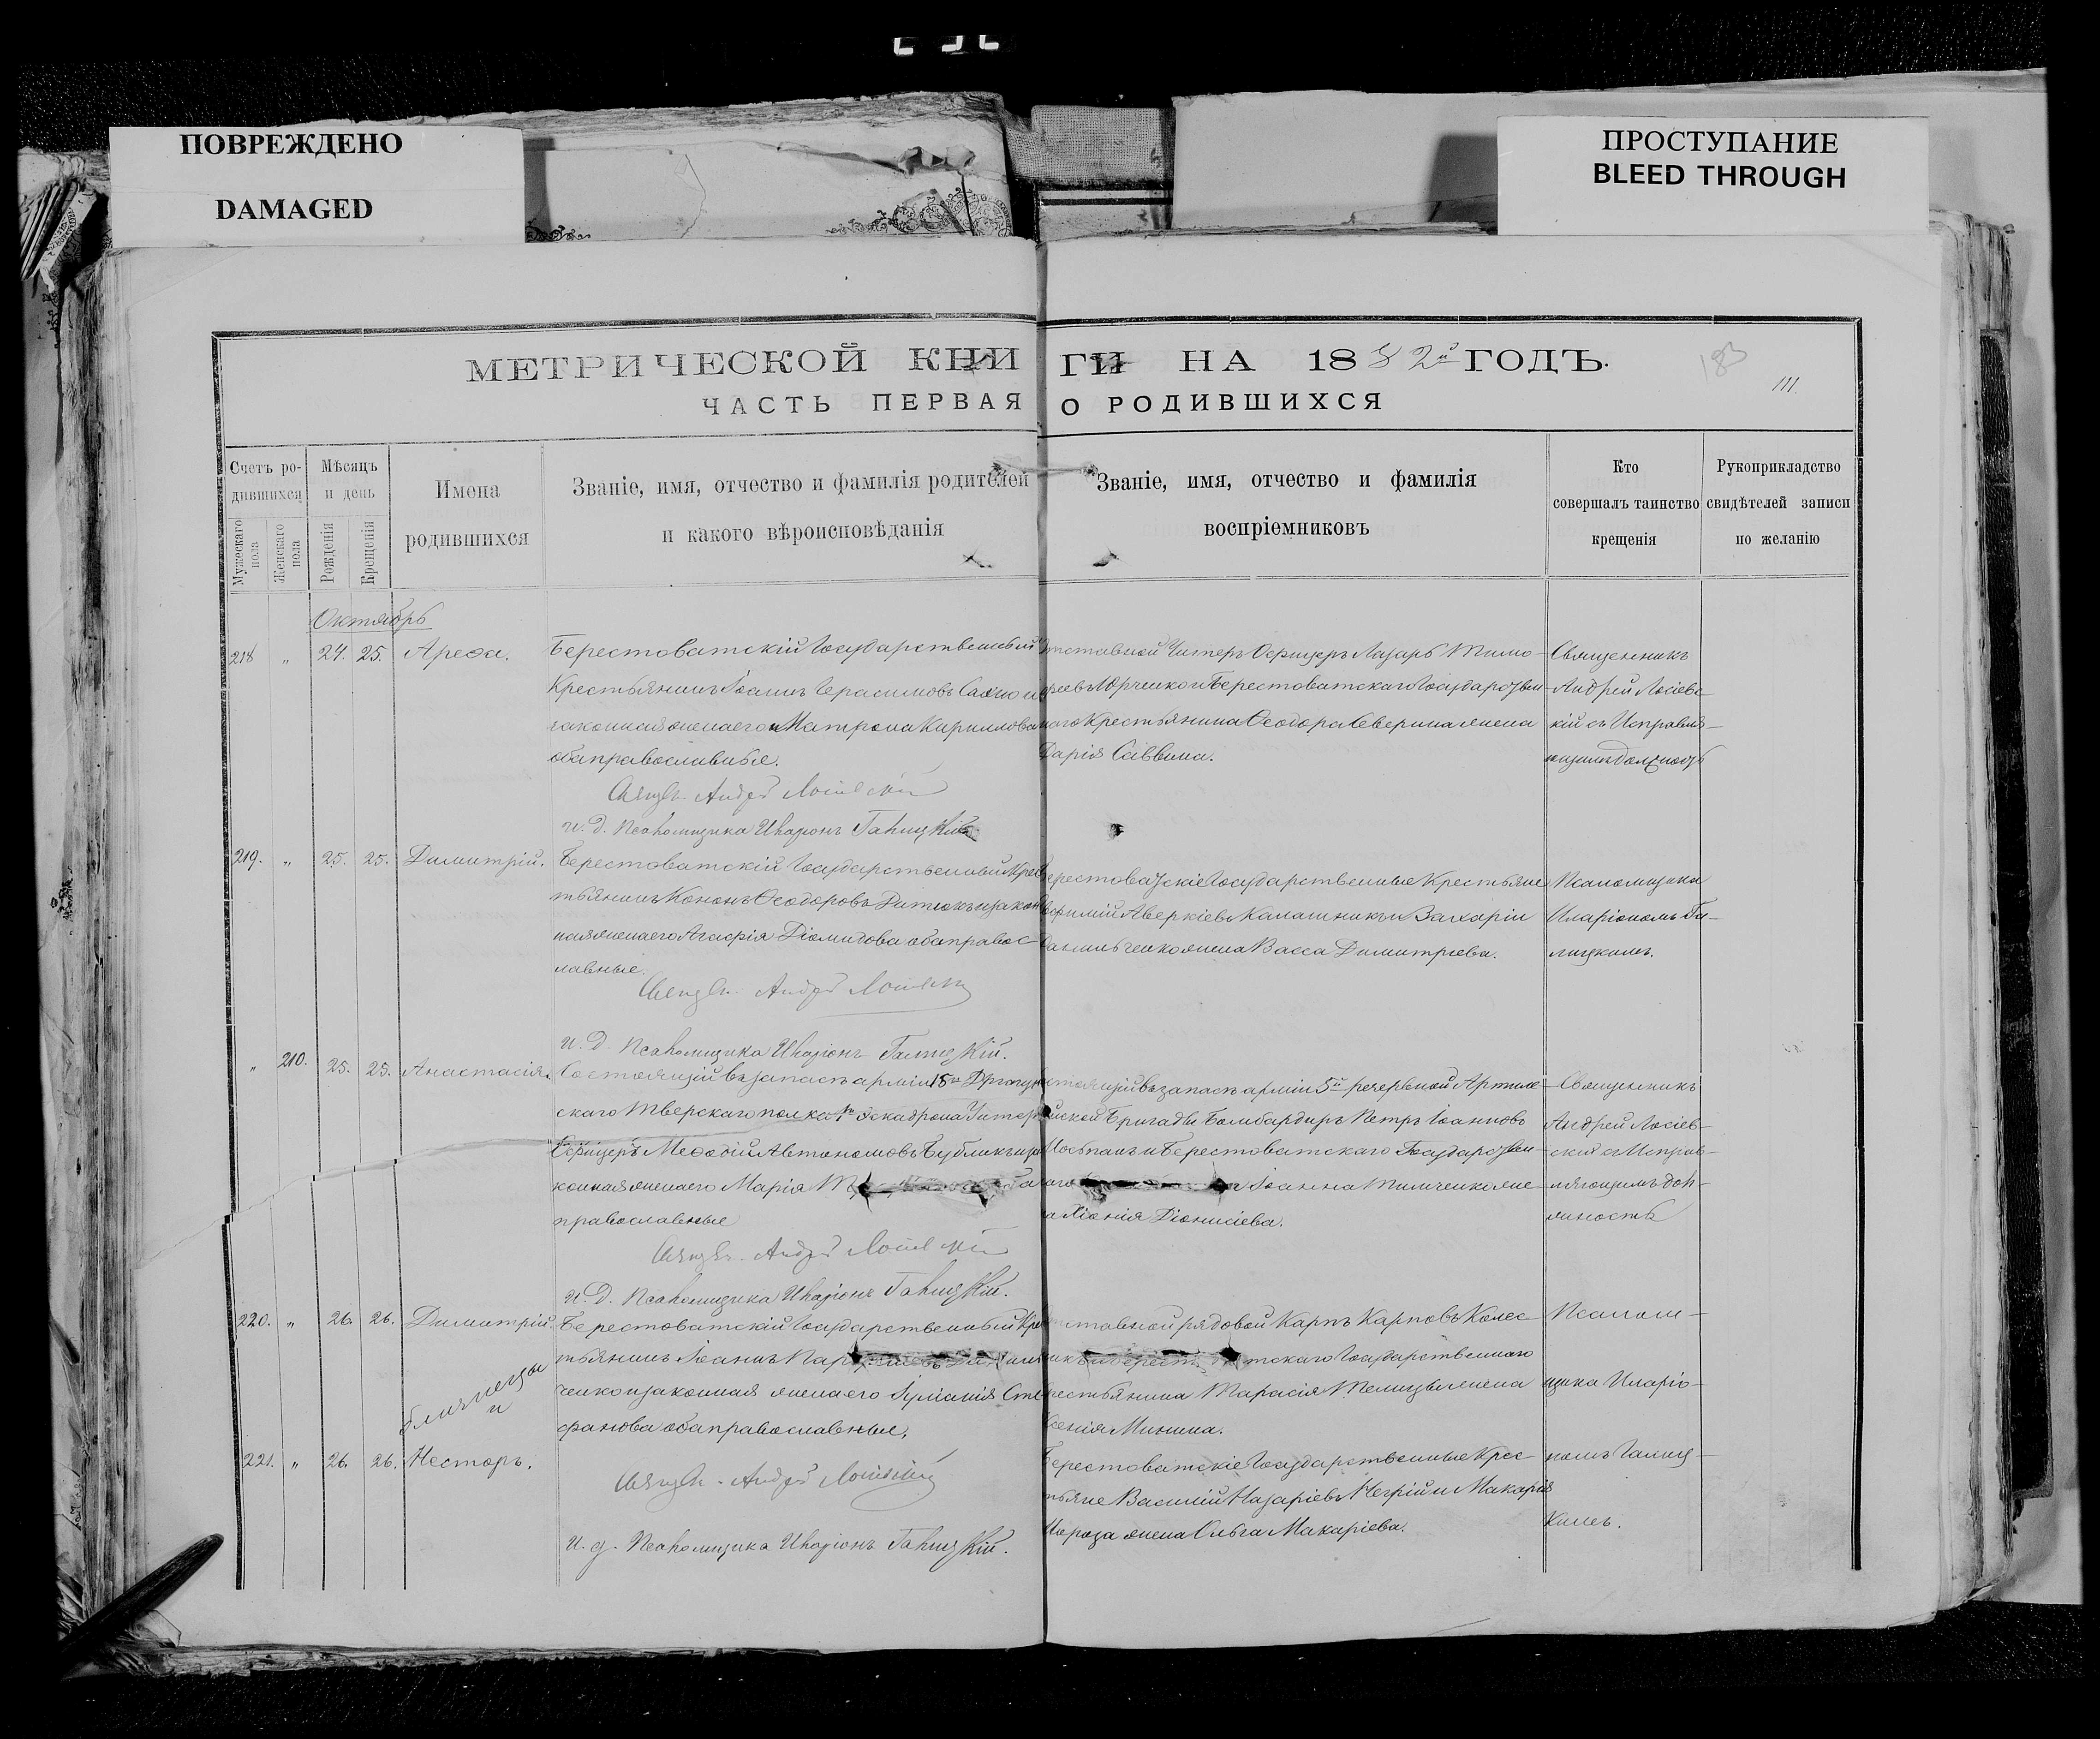 ПОВРЕЖДЕНО
DAMAGED
ПРОСТУПАНИЕ
BLEED THROUGH
МЕТРИЧЕСКОЙ КНИГИ НА 1882й ГОДЪ.
183
111.
ЧАСТЬ ПЕРВАЯ О РОДИВШИХСЯ
Счетъ родившихся
Мужескаго пола
Женскаго пола
Мѣсяцъ и день
Рожденія
Крещенія
Имена родившихся
Званіе, имя, отчество и фамилія родителей
и какого вѣроисповѣданія
Званіе, имя, отчество и фамилія
воспріемниковъ
Кто
совершалъ таинство
крещенія
Рукоприкладство
свидѣтелей записи
по желанію
Октябрь
218 " 24. 25. Арефа.
Берестоватскій Государственный
Крестьянинъ Іоаннъ Герасимовъ и
законная жена его Матрона Кириллова
оба православные.
Андрей
и. д. Псаломщика Иларіонъ Галицкій
Отставной Унтеръ Офицеръ Лазарь Тимо-
феевъ Юрченко и Берестоватскаго Государствен-
наго Крестьянина Ѳеодора Северина жена
Дарія Саввина.
Священникъ
Андрей Лосіевс-
кій съ Исправля-
ющимъ должность
219. " 25. 25. Димитрій.
Берестоватскій Государственный Крес-
тьянинъ Кононъ Ѳеодоровъ и закон-
ная жена его Агафія Діомидова оба правос-
лавные.
Андрей
и. д. Псаломщика Иларіонъ Галицкій.
Берестоватскіе Государственные Крестьяне
Аверкіевъ Калашникъ и Захаріи
Данильченко жена Васса Димитріева.
Псаломщика
Иларіономъ Га-
лицкимъ.
" 210. 25. 25. Анастасія.
Состоящій въ запасѣ арміи 15го Драгун-
скаго Тверскаго полка эскадрона Унтеръ
Офицеръ Меѳодій Автономовъ Бубликъ и за-
конная жена его Марія
православные
Андрей
и. д. Псаломщика Иларіонъ Галицкій.
Состоящій въ запасѣ арміи 5й резервной Артиле-
рійской Бригады Бомбардиръ Петръ Іоанновъ
и Берестоватскаго Государствен-
наго Іоанна Тимченко же-
на Діонисіева.
Священникъ
Андрей Лосіев-
скій съ Исправ-
ляющимъ дол-
жность
220. " 26. 26. Димитрій.
близнецы
и
221. " 26. 26. Несторъ.
Берестоватскій Государственный Крес-
тьянинъ Іоаннъ
ченко и законная жена его Іуліанія Сте-
фанова оба православные.
Андрей
и. д. Псаломщика Иларіонъ Галицкій.
Отставной рядовой Карпъ Карповъ Колес-
никъ и Берестоватскаго Государственнаго
Крестьянина Тарасія жена
Ксенія Минина.
Берестоватскіе Государственные Крес-
тьяне Василій Назаріевъ Негрій и Макарія
Мороза жена Ольга Макаріева.
Псалом-
щика Иларіо-
номъ Галиц-
кимъ.